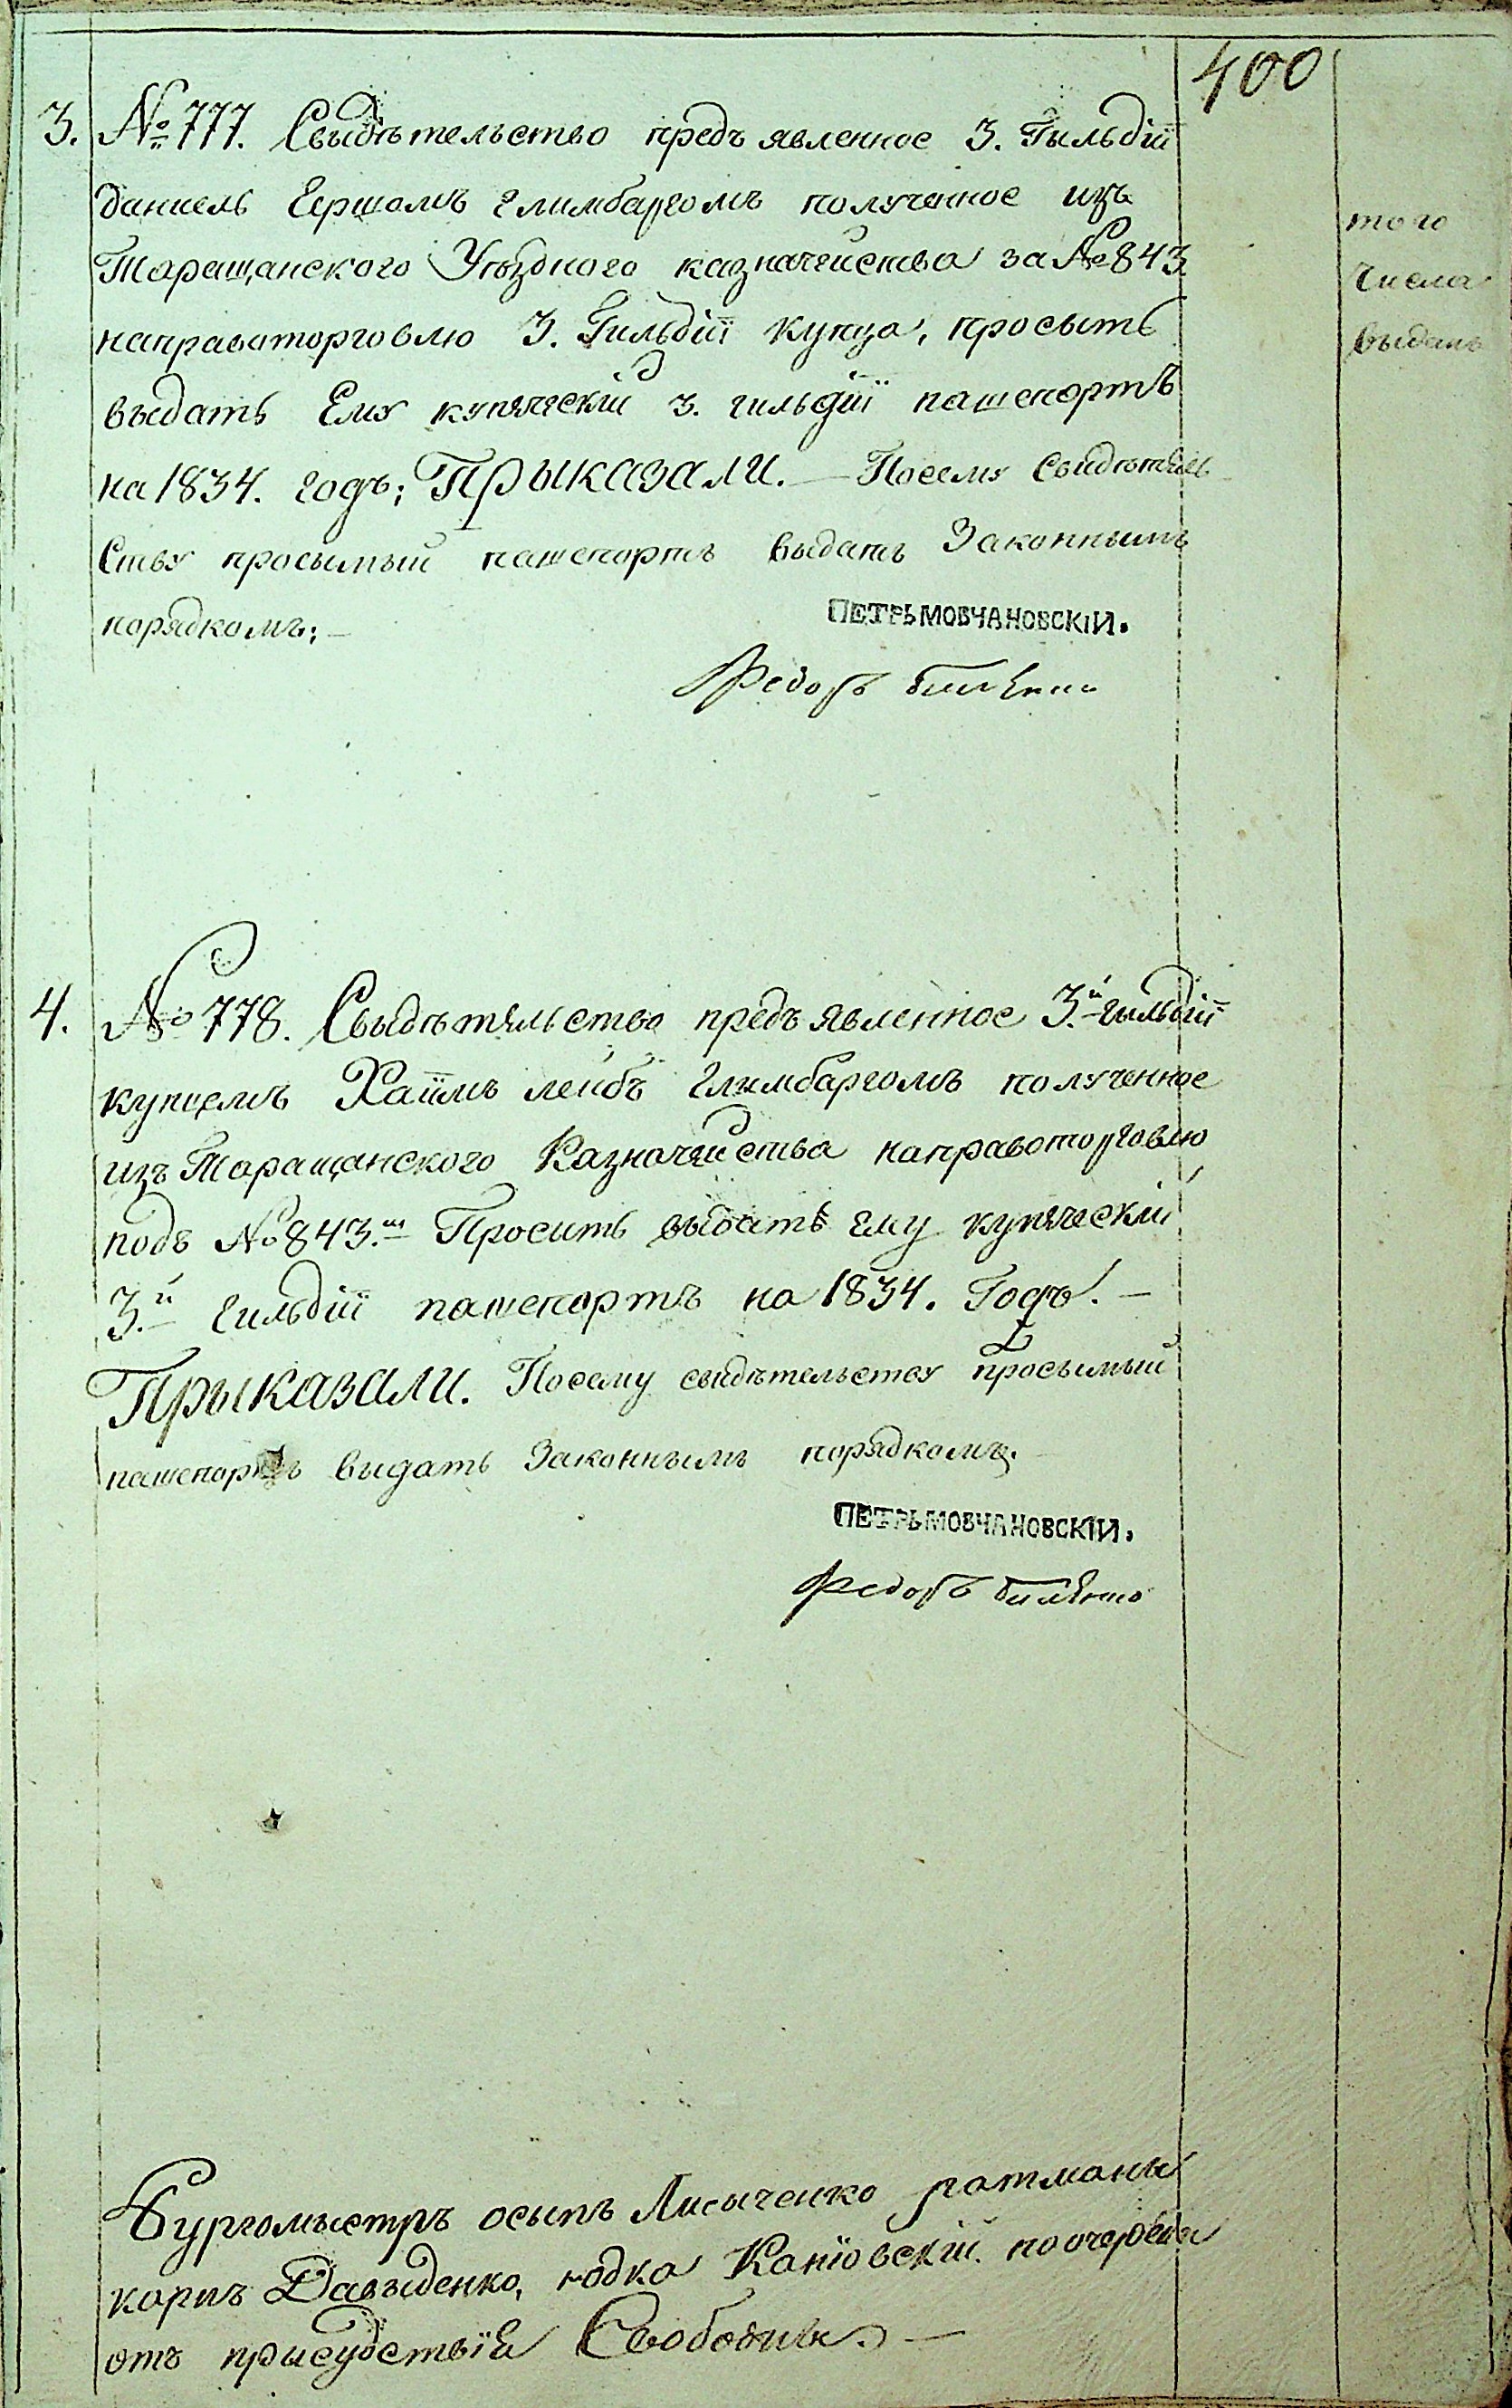 400
3. № 777. Свыдѣтельство предъявленное 3. Гыльдіи
даниель Гершомъ глимбаргомъ полученное изъ
Таращанского Уѣздного казначейства за № 843
направоторговлю 3. Гильдіи купца, просыть
выдать Ему купеческій 3. гильдіи пашепортъ
на 1834. годъ; Прыказали. — Посему Свидѣтель
Ству просымый пашепортъ выдать Законнымъ
порядкомъ; —
того
Числа
выданъ
ПЕТРЬ МОВЧАНОВСКІИ.
Федоръ
4. № 778. Свыдѣтельство предъявленное 3.й гыльдіи
купцемъ Хаимъ лейбъ Глимбаргомъ полученное
изъ Таращанского Казначейства направоторговлю
подъ № 843.м Просить выдать ему купеческій
3.й гильдіи пашепортъ на 1834. Годъ. —
Прыказали. Посему свидѣтельству просымый
пашепортъ выдать Законнымъ порядкомъ.
ПЕТРЬ МОВЧАНОВСКІИ.
Федоръ
Бургомыстръ осыпъ Лисыченко ратманы
карпъ Давыденко, юдка Каніовскій поочереди
отъ присудствія Свободны. —